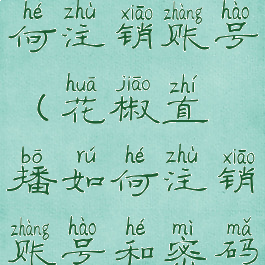 hé zhù xiāo zhàng hào
何注销账号
huā jiāo zhí
(花椒直
bō rú hé zhù xiāo
播如何注销
zhàng hào hé mì mǎ
账号和密码